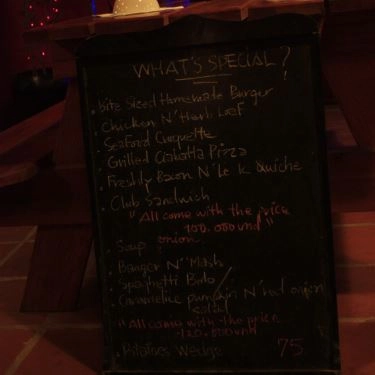 WHAT'S SPECIAL?
Bite Sized Homemade Burger
Chicken N' Herb Loaf
SeaFood Croquette
Grilled Ciabatta Pizza
Freshly Bacon N' Le k Quiche
Club Sandwich
"All come with the price
100.000 vnd"
Soup onion
Banger N' Mash
Spaghetti Bolo
Caramelice pumpkin N' red onion
salad
"All come with the price
120.000 vnd
Potatoes Wedge 75